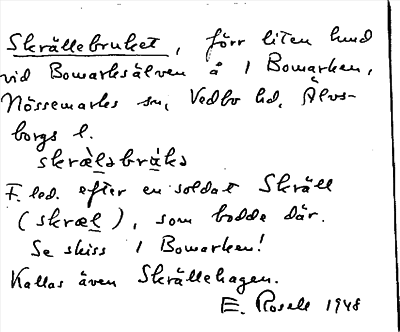 Skrällebruket, förr liten lund
vid Bowarksälven å 1 Bowarken,
Nössemarks sn, Vedbo hd, Älvs-
borgs l.
skræ̀lsbrák̲s
F. led. efter en soldat Skräll
(skræl̲), som bodde där.
Se skiss 1 Bowarken!
Kallas även Skrällehagen.
E. Rosell 1948